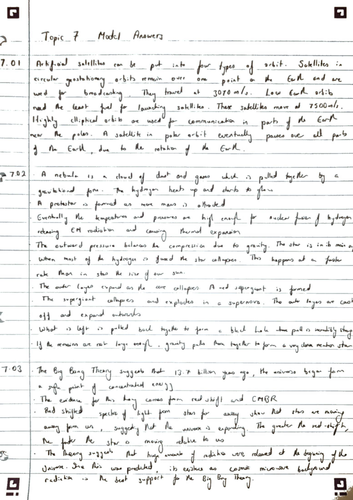 Topic 7 Model Answers
7.01 Artificial satellites can be put into four types of orbit. Satellites in
circular geostationary orbits remain over one point on the Earth and are
used for broadcasting. They travel at 3070 m/s. Low Earth orbits
need the least fuel for launching satellites. These satellites move at 7500 m/s.
Highly elliptical orbits are used for communication in parts of the Earth
near the poles. A satellite in polar orbit eventually passes over all parts
of the Earth, due to the rotation of the Earth.
7.02 · A nebula is a cloud of dust and gases which is pulled together by a
gravitational force. The hydrogen heats up and starts to glow
· A protostar is formed as more mass is attracted
· Eventually the temperature and pressure are high enough for nuclear fusion of hydrogen
releasing EM radiation and causing thermal expansion
· The outward pressure balances the compression due to gravity. The star is in its main
· When most of the hydrogen is fused the star collapses. This happens at a faster
rate than in stars the size of our sun.
· The outer layers expand as the core collapses. A red supergiant is formed
· The supergiant collapses and explodes in a supernova. The outer layers are cast
off and expand outwards
· What is left is pulled back together to form a black hole whose pull is incredibly strong
· If the remains are not large enough, gravity pulls them together to form a very dense neutron star
7.03 · The Big Bang Theory suggests that 13.7 billion years ago, the universe began from
a point of concentrated energy
· The evidence for this theory comes from red-shift and CMBR
· Red shifted spectra of light from stars far away show that stars are moving
away from us, suggesting that the universe is expanding. The greater the red-shift,
the faster the star is moving relative to us
· The theory suggests that huge amounts of radiation were released at the beginning of the
Universe. Since this was predicted, its existence as cosmic microwave background
radiation is the best support for the Big Bang Theory.